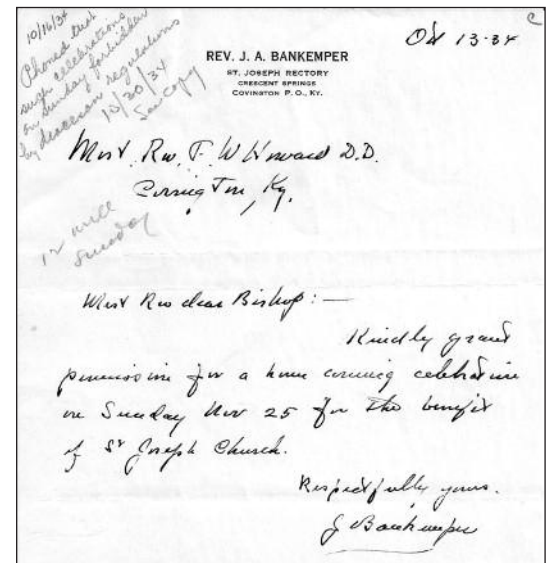 10/16/34
Phoned that
such celebrations
on Sunday forbidden
by diocesan regulations
10/20/34
See copy
C
Oct 13-34
REV. J. A. BANKEMPER
ST. JOSEPH RECTORY
CRESCENT SPRINGS
COVINGTON P. O., KY.
Most Rev. F. W Howard D.D.
Covington, Ky.
12
Sunday
Most Rev dear Bishop: —
Kindly grant
permission for a home coming celebration
on Sunday Nov 25 for the benefit
of St Joseph Church.
Respectfully yours.
J Bankemper